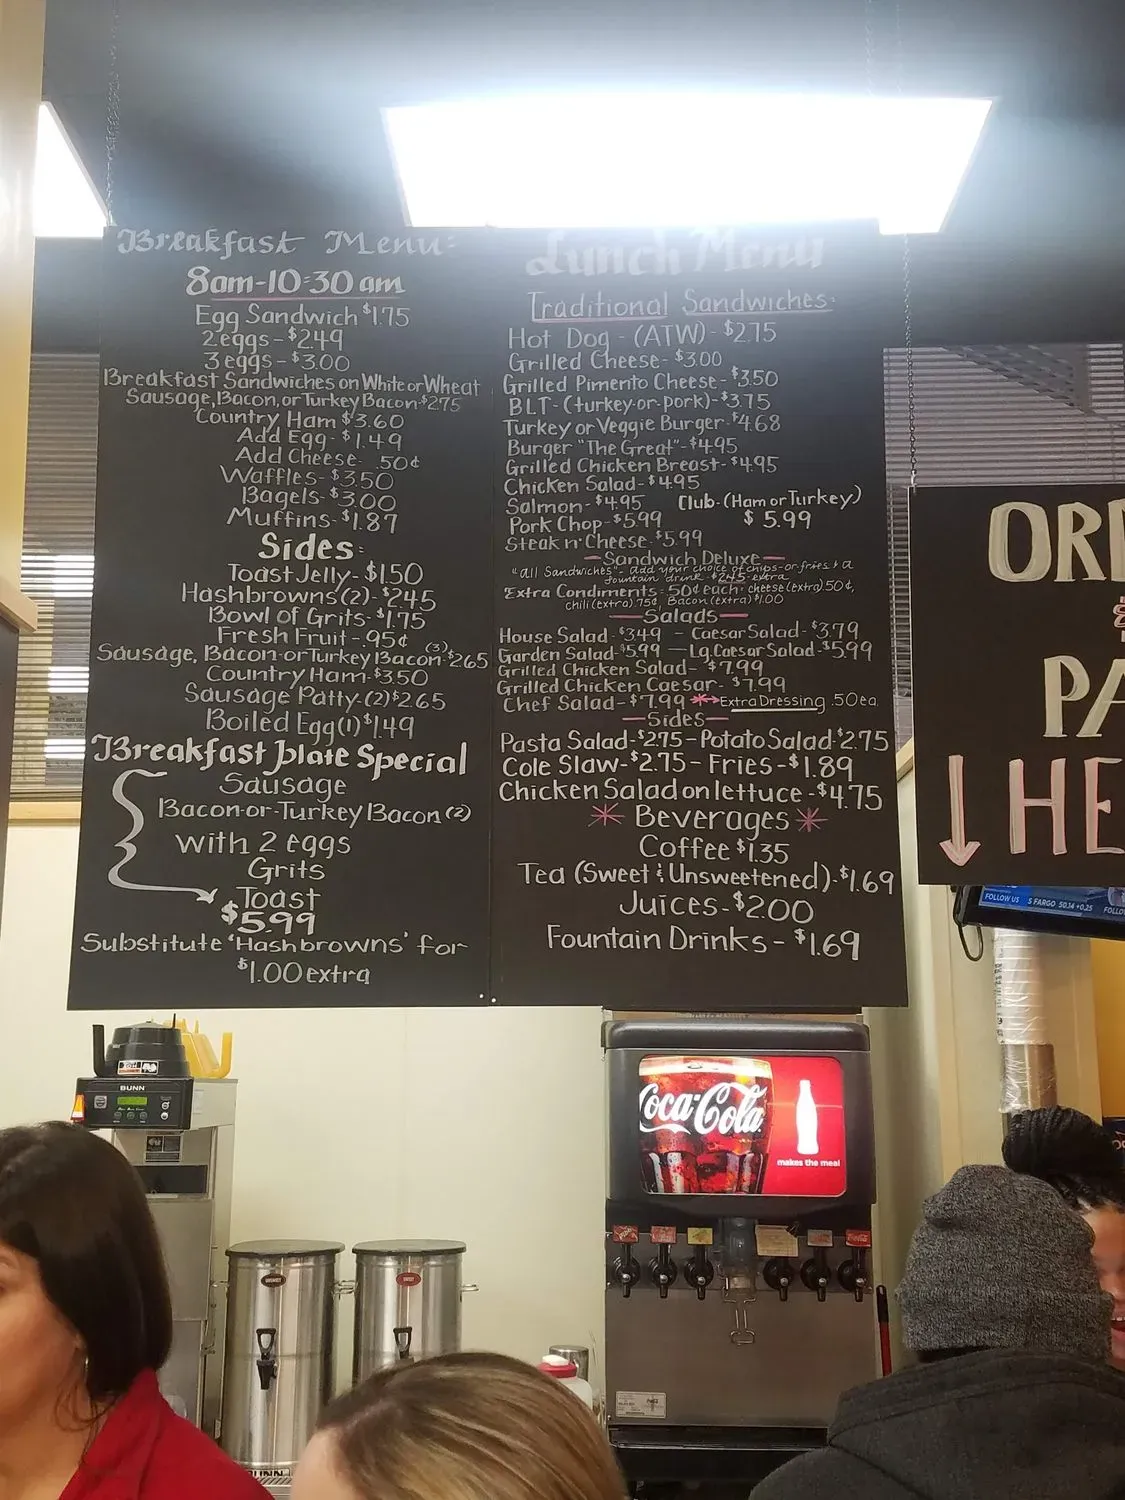 Breakfast Menu:
8am-10:30 am
Egg Sandwich $1.75
2 eggs - $2.49
3 eggs - $3.00
Breakfast Sandwiches on White or Wheat
Sausage, Bacon, or Turkey Bacon $2.75
Country Ham $3.60
Add Egg - $1.49
Add Cheese - .50¢
Waffles - $3.50
Bagels - $3.00
Muffins - $1.87
Sides:
Toast Jelly - $1.50
Hashbrowns (2) - $2.45
Bowl of Grits - $1.75
Fresh Fruit - .95¢
Sausage, Bacon-or-Turkey Bacon (3) $2.65
Country Ham - $3.50
Sausage Patty - (2) $2.65
Boiled Egg (1) $1.49
Breakfast plate Special
Sausage
Bacon-or-Turkey Bacon (2)
with 2 eggs
Grits
Toast
$5.99
Substitute 'Hashbrowns' for
$1.00 extra
Lunch Menu
Traditional Sandwiches:
Hot Dog - (ATW) - $2.75
Grilled Cheese - $3.00
Grilled Pimento Cheese - $3.50
BLT - (turkey-or-pork) - $3.75
Turkey or Veggie Burger - $4.68
Burger "The Great" - $4.95
Grilled Chicken Breast - $4.95
Chicken Salad - $4.95
Salmon - $4.95 Club - (Ham or Turkey)
Pork Chop - $5.99 $5.99
Steak n' Cheese - $5.99
Sandwich Deluxe
"all Sandwiches" - add your choice of chips-or-fries & a
fountain drink - $2.45 extra
Extra Condiments - 50¢ each - cheese (extra) .50¢,
chili (extra) .75¢, Bacon (extra) $1.00
Salads
House Salad - $3.49 - Caesar Salad - $3.79
Garden Salad - $5.99 - Lg. Caesar Salad - $5.99
Grilled Chicken Salad - $7.99
Grilled Chicken Caesar - $7.99
Chef Salad - $7.99 * Extra Dressing .50 ea.
Sides
Pasta Salad - $2.75 - Potato Salad $2.75
Cole Slaw - $2.75 - Fries - $1.89
Chicken Salad on lettuce - $4.75
* Beverages *
Coffee $1.35
Tea (Sweet & Unsweetened) - $1.69
Juices - $2.00
Fountain Drinks - $1.69
ORD
&
PA
HE
FOLLOW US S FARGO 50.14 +0.25 FOLLO
BUNN
Coca-Cola
makes the meal
BUNN